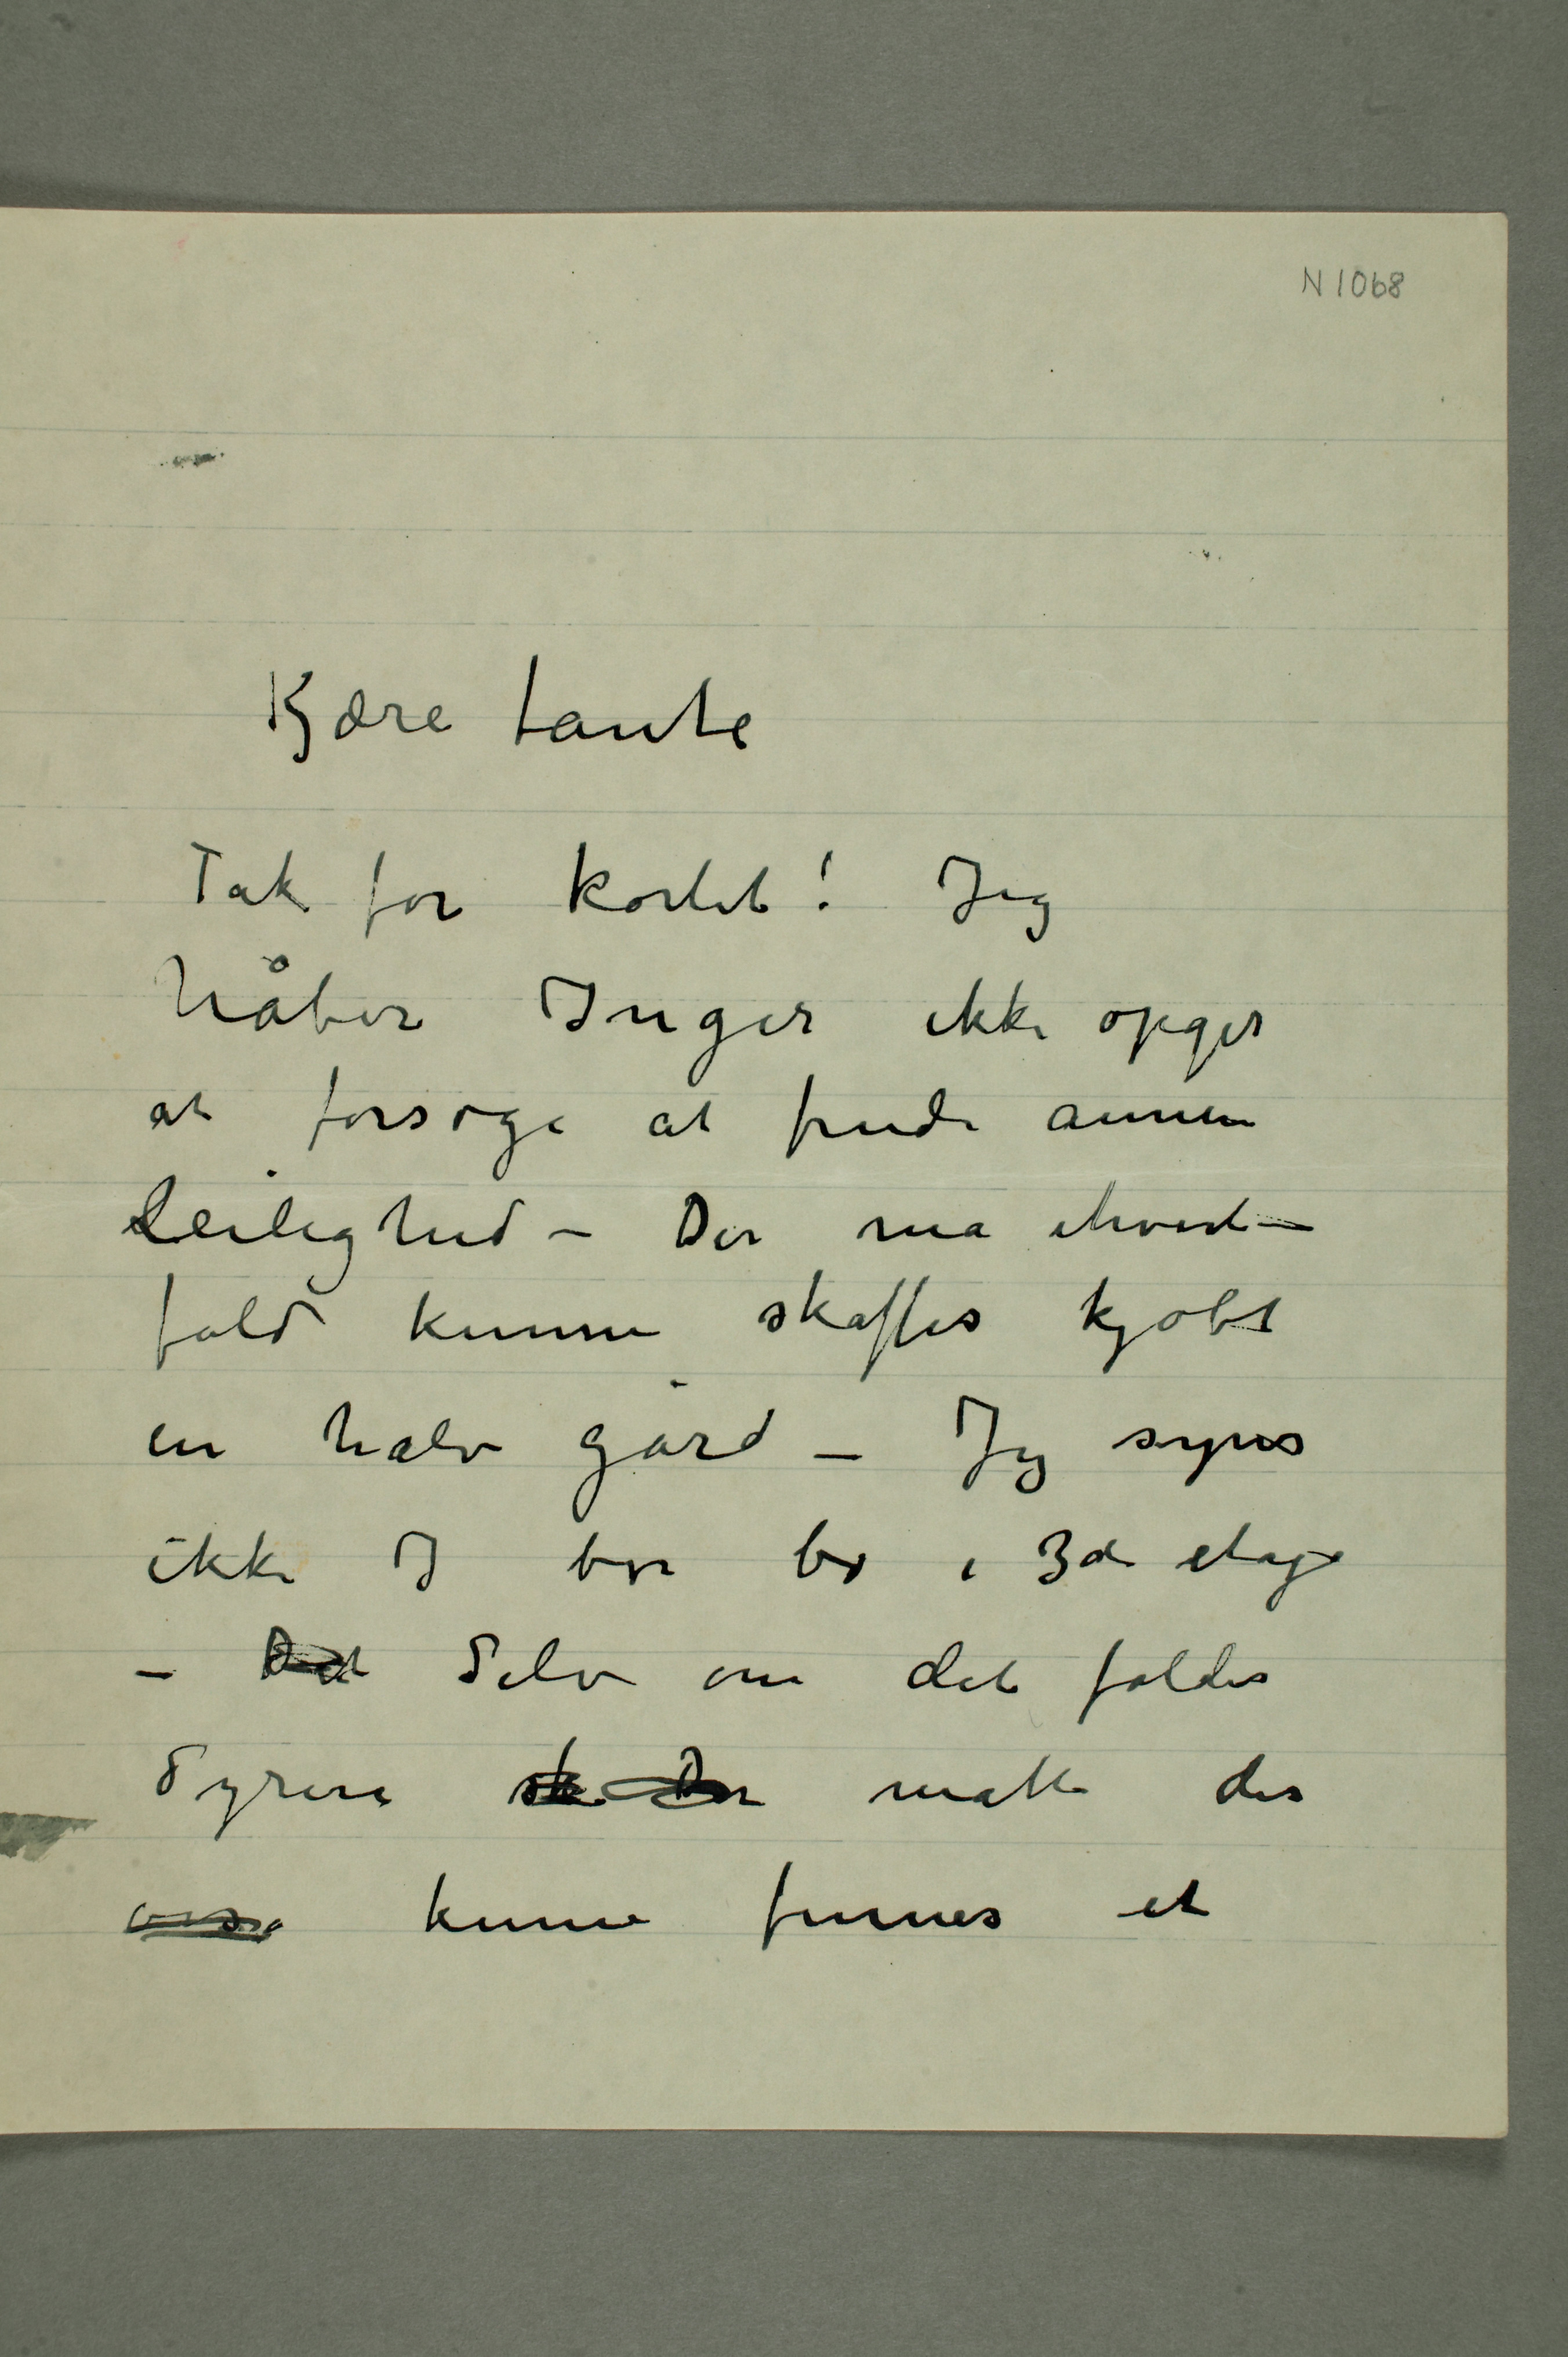 N 1068
Kjære tante
Tak for kortet! Jeg
håber Inger ikke opger
at forsøge at finde annen
Leilighed – Der må ihvert–
fald kunne skaffes kjøbt
en halv gård – Jeg synes
ikke I bør bo i 3de etage
– Det Selv om det falder
Dyrere sk Der matte der
også kunne finnes et